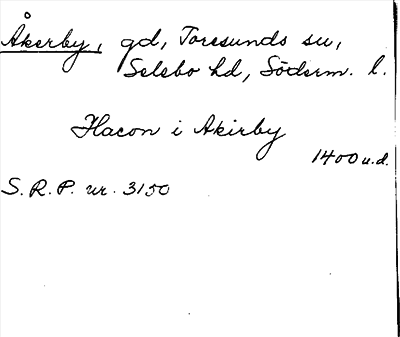 Åkerby, gd, Toresunds su,
Selebo hd, Söderm. l.
Hacon i Akirby
1400 u.d.
S.R.P. nr. 3150